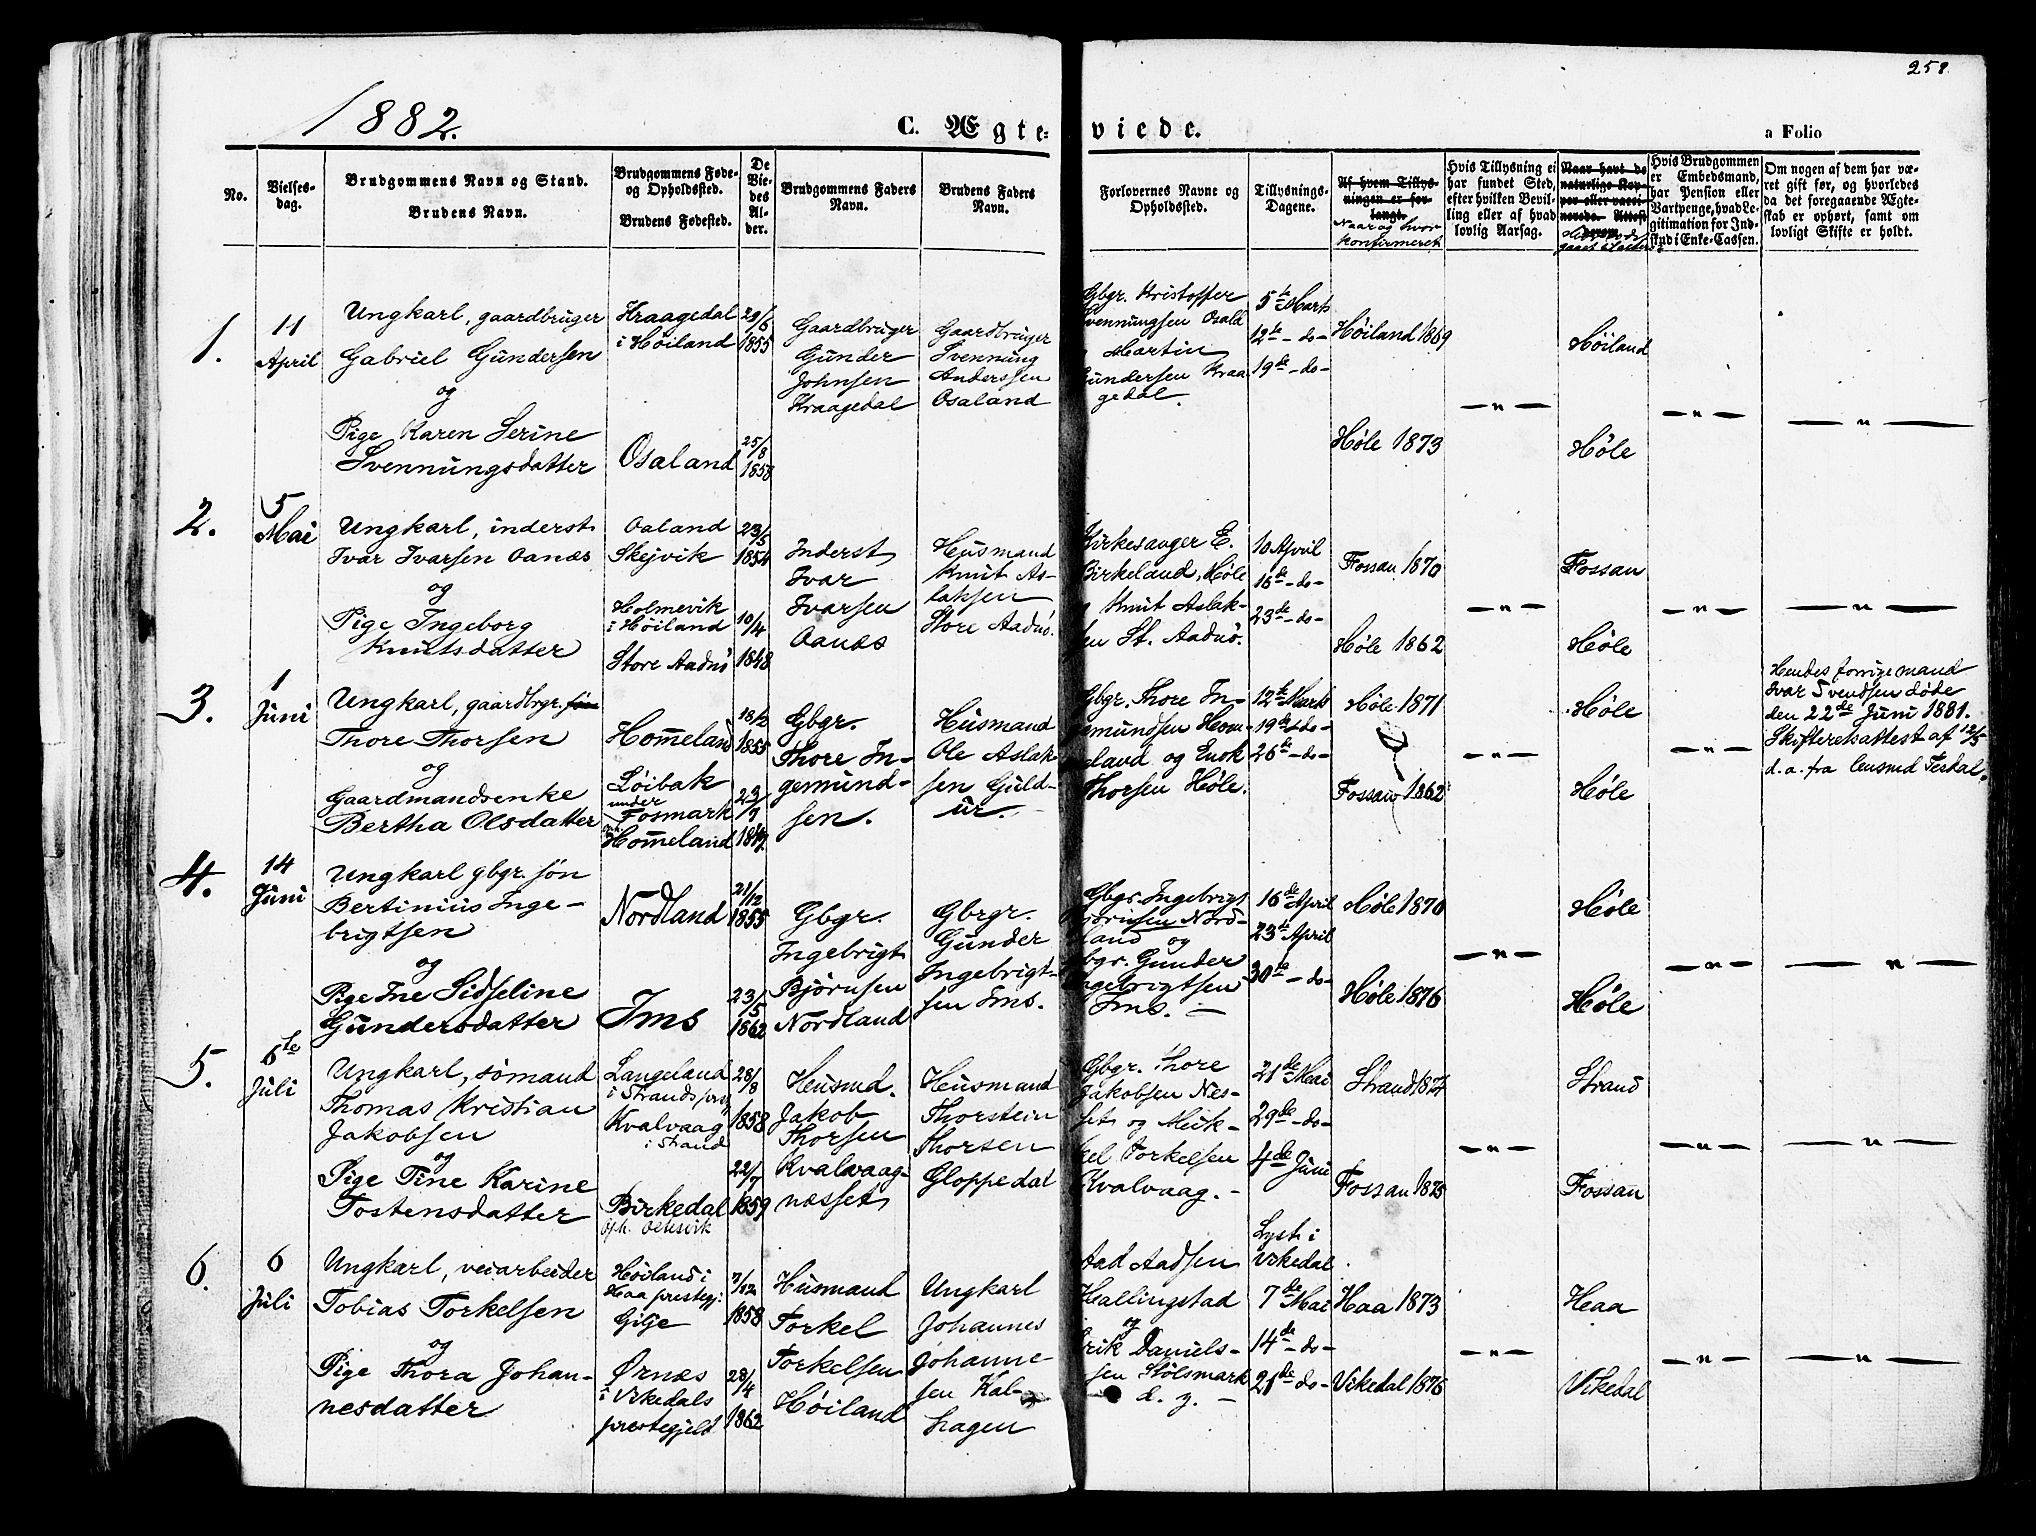 258
1882.
C. Ægteviede.
a Folio
No.
Vielsesdag.
Brudgommens Navn og Stand.
Brudens Navn.
Brudgommens Føde- og Opholdssted.
Brudens Fødested.
De Viedes Alder.
Brudgommens Faders Navn.
Brudens Faders Navn.
Forlovernes Navne og Opholdssted.
Tillysnings-Dagene.
Af hvem Tillysningen er forlangt.
Naar og hvor konfirmeret
Hvis Tillysning ei har fundet Sted, efter hvilken Bevilling eller af hvad lovlig Aarsag.
Naar havt de naturlige Kopper eller vaccinerede. Attest derom.
Hvis Brudgommen er Embedsmand, har Pension eller Vartpenge, hvad Legitimation for Indskud i Enke-Cassen.
Om nogen af dem har været gift før, og hvorledes da det foregaaende Ægteskab er ophørt, samt om lovligt Skifte er holdt.
1.
11
April
Ungkarl, gaardbruger
Gabriel Gundersen
og
Pige Karen Serine
Svennungsdatter
Kraagedal
i Høiland
Osaland
29/5
1855
25/8
1858
Gaardbruger
Gunder
Johnsen
Kraagedal
Gaardbruger
Svennung
Anderssen
Osaland
Gbgr. Kristoffer
Svennungsen Osald
Martin
Gundersen Kraa
gedal.
5te Marts
12te - do -
19de - do -
Høiland 1869
Høle 1873
Høiland
Høle
— " —
— " —
— " —
2.
5
Mai
Ungkarl, inderst
Ivar Ivarsen Oanæs
og
Pige Ingeborg
Knutsdatter
Oaland
Skejvik
Holmevik
i Høiland
Store Aadnö
23/5
1854
10/4
1848
Inderst
Ivar
Ivarsen
Oanæs
Husmand
Knut As-
laksen
Store Aadnö.
Kirkesanger E.
Birkeland, Høle
Knut Aslak-
sen St. Aadnö.
10 April
16de - do -
23de - do -
Fossan 1870
Høle 1862
Fossan
Høle
— " —
— " —
— " —
3.
1
Juni
Ungkarl, gaardbrgr. søn
Thore Thorsen
og
Gaardmandsenke
Bertha Olsdatter
Hommeland
Løibak
under
Fosmark
Hommeland
18/2
1855
Gbgr.
Thore In-
gemund-
sen.
Husmand
Ole Aslak-
sen Guld-
ur. -
Gbgr. Thore In-
gemundsen Hom-
eland og Enok
Thorsen Høle.
12te Marts
19de - do -
26de - do -
Høle 1871
Fossan 1862
Høle
Høle
— " —
— " —
Hendes forrige mand
Ivar Svendsen døde
den 22de Juni 1881.
Skifteretsattest af 12/5
d. a. fra
4.
14
Juni
Ungkarl gbgr. søn
Bertinius Inge-
brigtsen
og
Pige Ine Sidseline
Gundersdatter
Nordland
Ims
21/12
1855
23/5
1862
Gbgr.
Ingebrigt
Bjørnsen
Nordland
Gbrgr.
Gunder
Ingebrigt-
sen Ims.
Gbgr. Ingebrigt
Bjørnsen Nord-
land og
Gbgr. Gunder
Ingebrigtsen
Ims. —
16de April
23de April
30te - do -
Høle 1870
Høle 1876
Høle
Høle
— " —
— " —
— " —
5.
6te
Juli
Ungkarl, sømand
Thomas Kristian
Jakobsen
og
Pige Tine Karine
Tostensdatter
Langeland
i Strands prstg
Kvalvaag
i Strand
Birkedal
oph. Oltesvik
28/8
1858
22/7
1859
Husmd.
Jakob
Thorsen
Kvalvaag-
næsset
Husmand
Thorstein
Thorsen
Gloppedal
Gbgr. Thore
Jakobsen Nes-
set og Mik-
kel Torkelsen
Kvalvaag. -
21de Mai
29de - do -
4de Juni
Strand 1874
Fossan 1875
Strand
Fossan
— " —
— " —
— " —
6.
6
Juli
Ungkarl, veiarbeider
Tobias Torkelsen
og
Pige Thora Johan-
nesdatter
Høiland i
Haa prestegj:
Gije
Ørnæs
i Vikedals
prestegjeld
7/12
1858
28/4
1862
Husmand
Torkel
Torkelsen
Høiland
Ungkarl
Johannes
Johanne-
sen Kal-
hagen
Aad Aadsen
Hallingstad
og
Erik Daniels-
sen Stølsmark
d. y. -
Lyst i
Vikedal
7de Mai
14de - do -
21de - do -
Haa 1873
Vikedal 1876
Haa
Vikedal
— " —
— " —
— " —